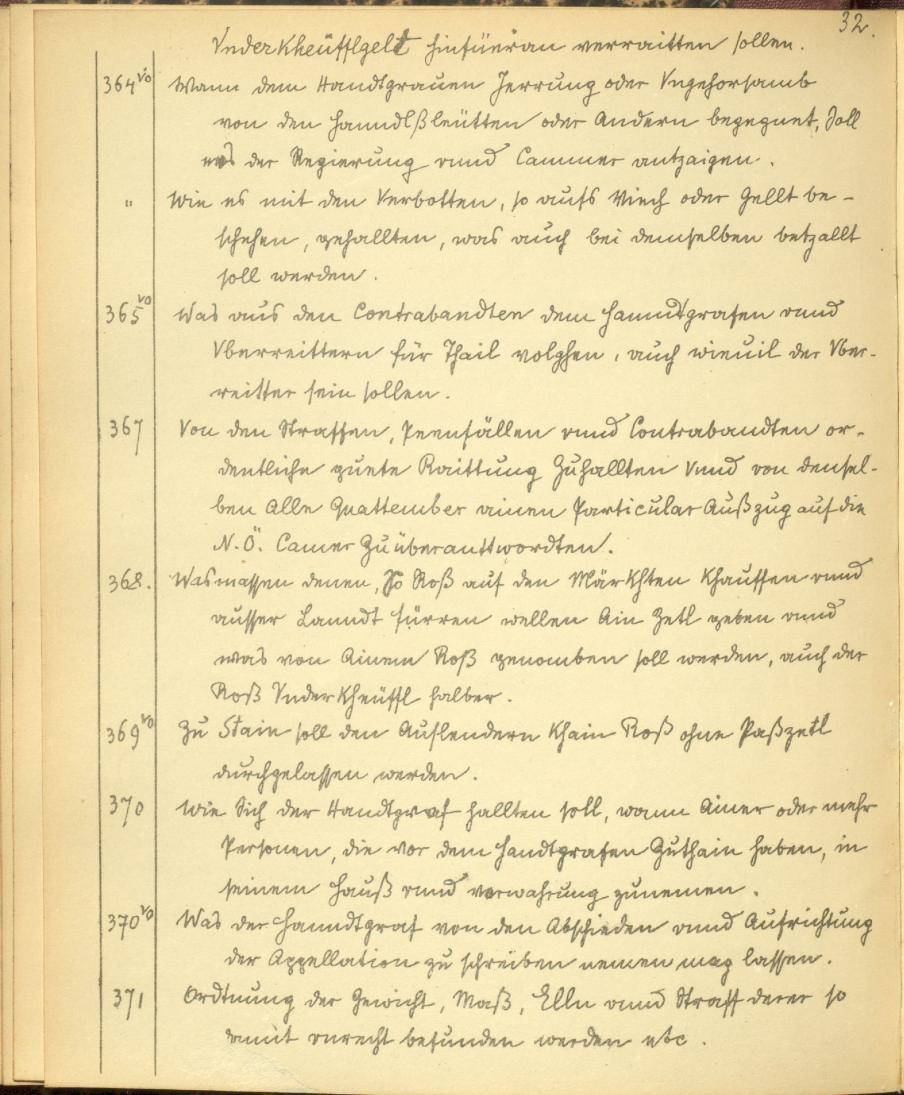 32.
Vnderkheüfflgelt hinfüeran verraitten sollen.
364vo Wann dem Handtgrauen Jerrung oder Vngehorsamb
von den Hanndlßleütten oder Andern begegnet, Soll
ers der Regierung vnnd Cammer antzaigen.
" Wie es mit den Verbotten, so aufs Viech oder Gellt be-
schehen, gehallten, was auch bei demselben betzallt
soll werden.
365vo Was aus den Contrabandten dem Hanndtgrafen vnnd
Vberreittern für Thail volghen, auch wieuil der Vber-
reitter sein sollen.
367 Von den Straffen, Peenfällen vnnd Contrabandten or-
dentliche guete Raittung Zuhallten Vnnd von densel-
ben Alle Quattember ainen Particular Außzug auf die
N.Ö. Camer Zuüberanttwordten.
368. Wasmassen denen, So Roß auf den Märkhten Khauffen vnnd
ausser Lanndt fürren wellen Ain Zetl geben vnnd
was von Ainem Roß genomben soll werden, auch der
Roß Vnderkheüffl halber.
369vo Zu Stain soll den Auslendern Khain Roß ohne Paßzetl
durchgelassen werden.
370 Wie Sich der Handtgraf hallten soll, wann Ainer oder mehr
Personen, die vor dem Handtgrafen Zuthain haben, in
seinem Hauß vnnd verwahrung zunemen.
370vo Was der Hanndtgraf von den Abschieden vnnd Aufrichtung
der Appellation zu schreiben nemen mag lassen.
371 Ordtnung der Gewicht, Maß, Elln vnnd Straff derer so
damit vnrecht befunden werden etc.